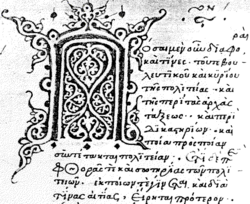 ραὶ
Πόσαι μὲν οὖν διαφο
καὶ τίνες. τοῦ τε βου
λευτικοῦ καὶ κυρίου
τῆς πολιτείας· καὶ
τῆς περὶ τὰς ἀρχὰς
τάξεως· καὶ περὶ
δικαστηρίων· καὶ
ποία πρὸς ποίαν
συντέτακται πολιτείαν· ἔτι δὲ περὶ
φθορᾶς τε καὶ σωτηρίας τῶν πολι
τειῶν· ἐκ ποίων τε γίνεται καὶ διὰ
τίνας αἰτίας, εἴρηται πρότερον.